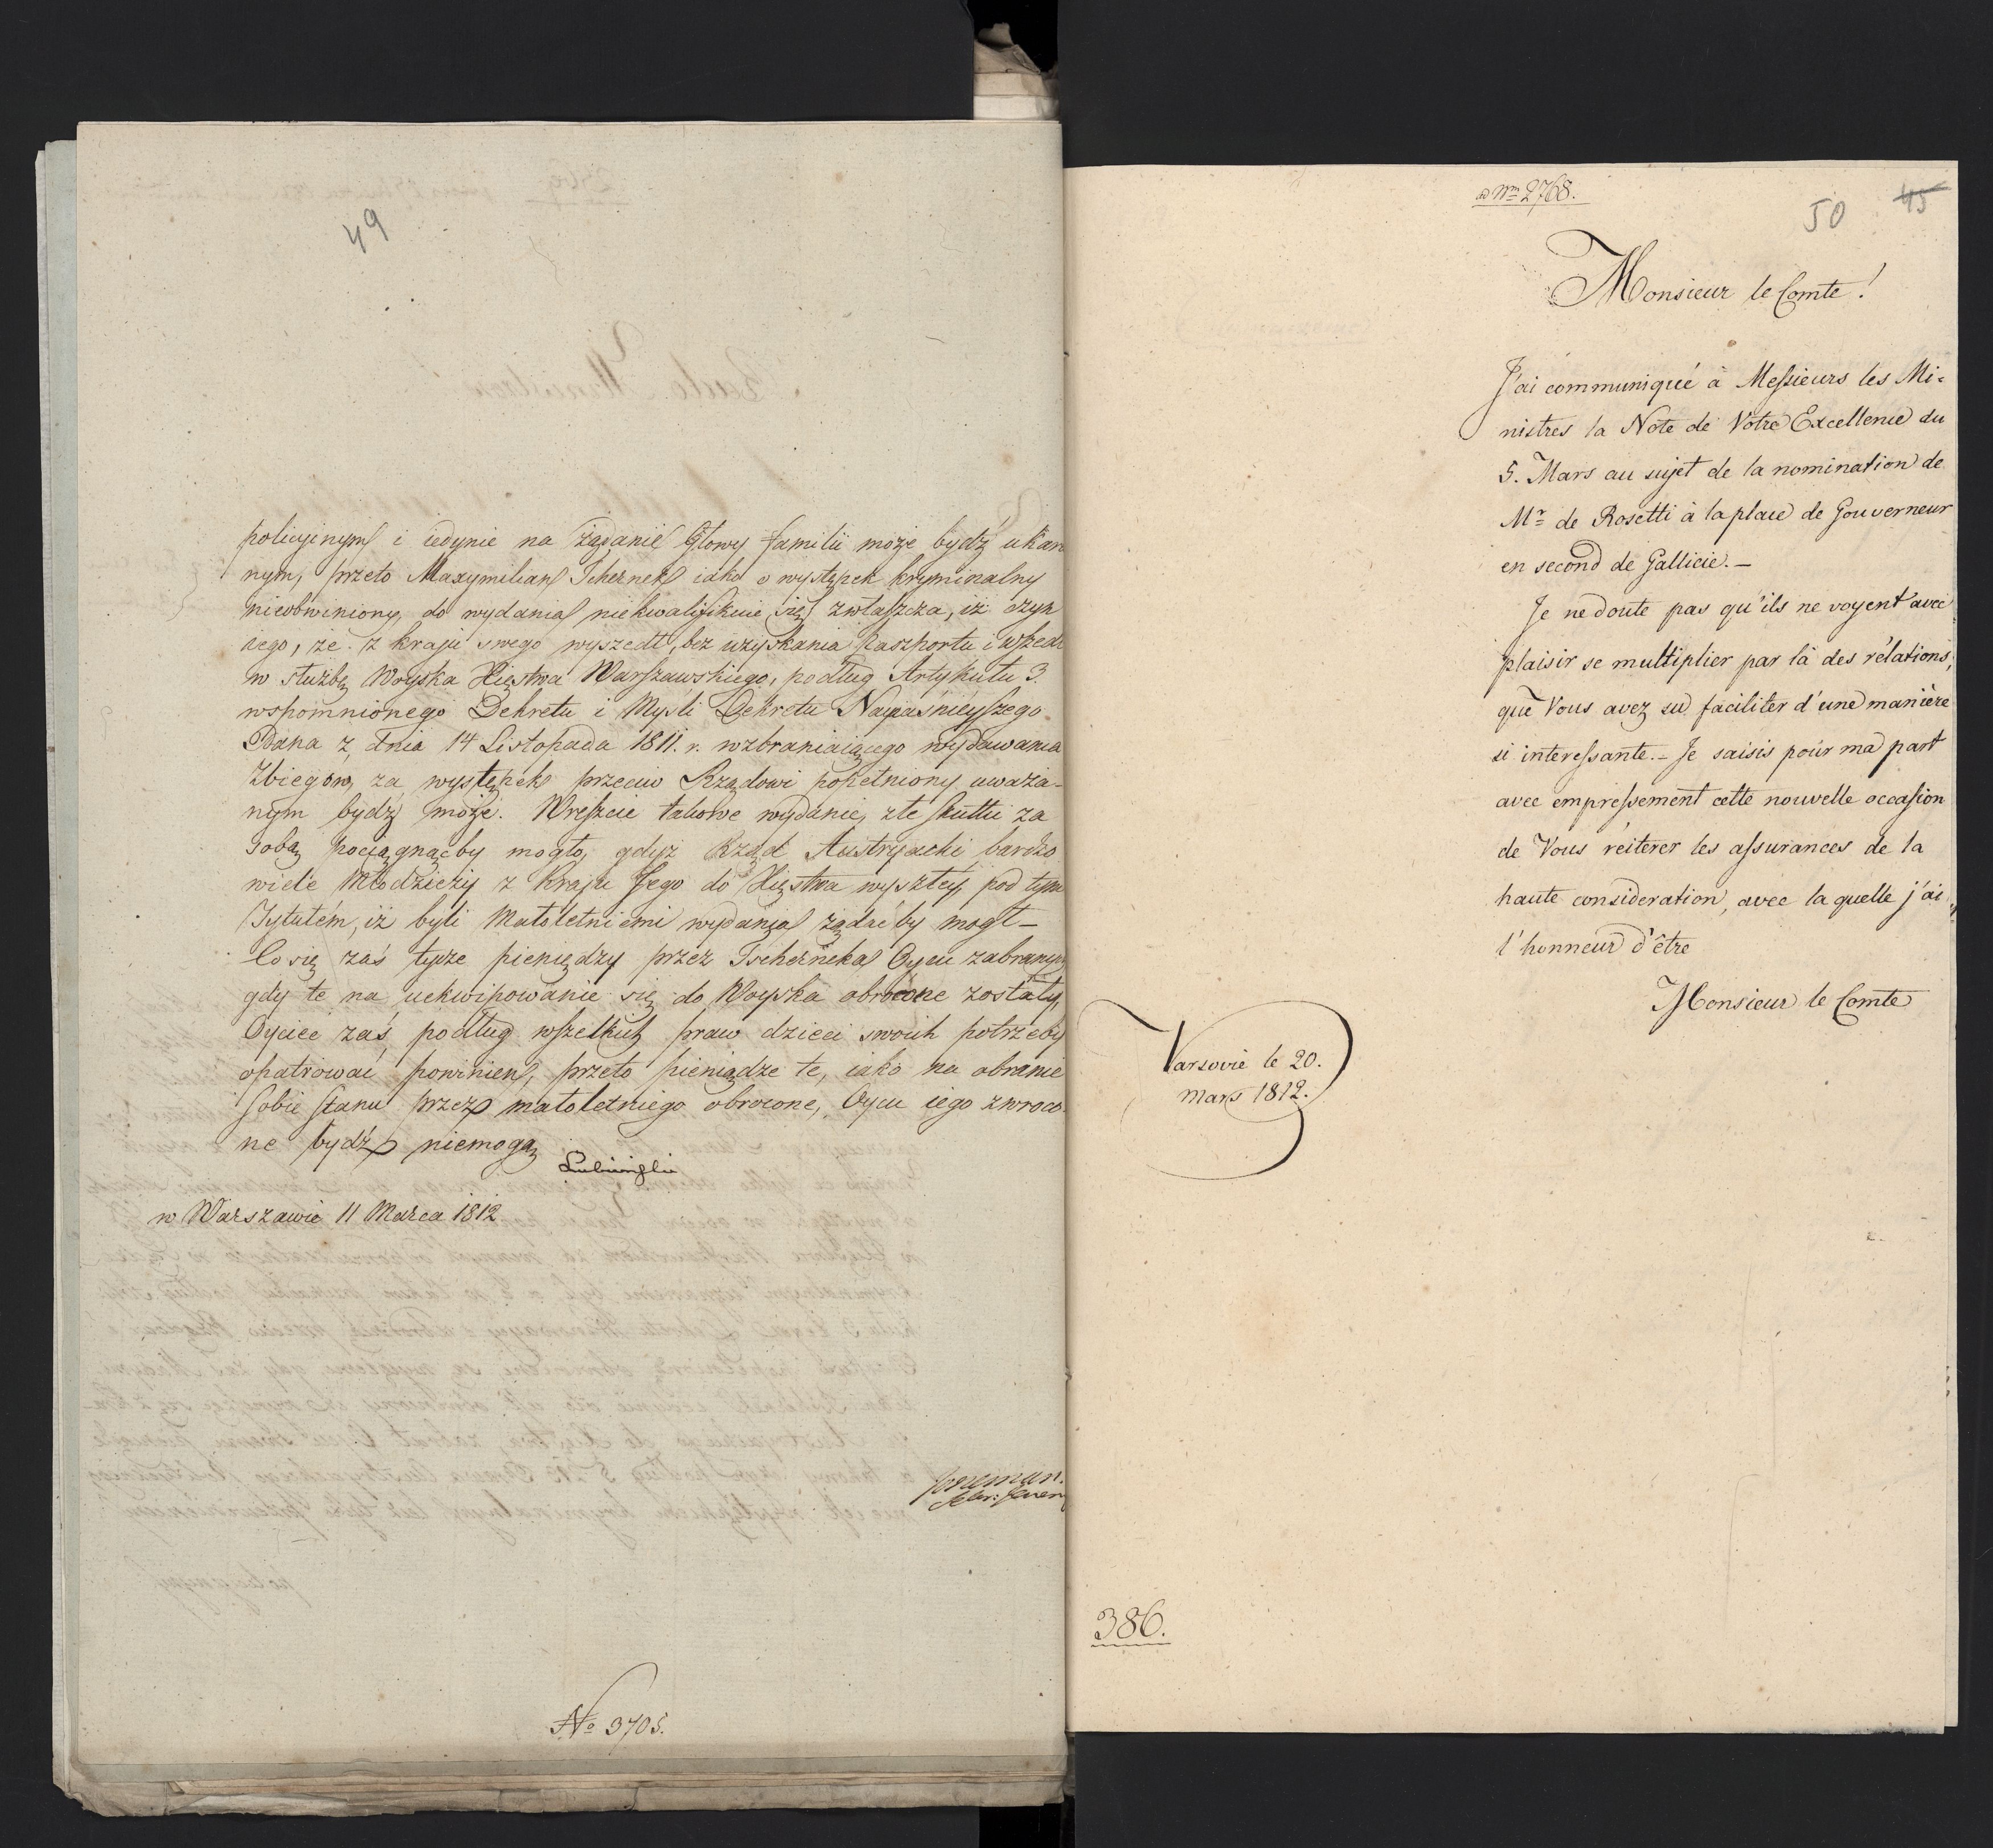 49
policyinym i iedynie na żądanie Głowy familii może bydź ukara
nym, przeto Maxymilian Tschernek iako o występek kryminalny
nieobwiniony, do wydania niekwalifikuie się zwłaszcza, iż czyn
iego, że z kraju swego wyszedł, bez uzyskania Paszportu i wszedł
w służbę Woyska Xięstwa Warszawskiego, podług Artykułu 3.
wspomnionego Dekretu i Myśli Dekretu Nayiaśnieyszego
Pana z dnia 14 Listopada 1811. r. wzbraniaiącego wydawania
Zbiegów, za występek przeciw Rządowi popełniony uważa-
nym bydź może. Wreszcie takowe wydanie, złe skutki za
sobą pociągnąćby mogło, gdyż Rząd Austryacki bardzo
wiele Młodzieży z Kraju Jego do Xięstwa wyszłey pod tym
Tytułem, iż byli Małoletniemi wydania żądać by mogł –
Co się zaś tycze pieniędzy przez Tscherneka Oycu zabranych
gdy te na uekwipowanie się do Woyska obrócone zostały,
Oyciec zaś podług wszelkich praw dzieci swoich potrzeby
opatrować powinien, przeto pieniądze te, iako na obranie
sobie stanu przez małoletniego obrocone, Oycu iego zwroco
ne bydź niemogą
w Warszawie 11 Marca 1812
No 3705.
ad Nrm 2768.
50 45
Monsieur le Comte!
J'ai communiqué à Messieurs les Mi-
nistres la Note de Votre Excellence du
5. Mars au sujet de la nomination de
Mr de Rosetti à la place de Gouverneur
en second de Gallicie. –
Je ne doute pas qu'ils ne voyent avec
plaisir se multiplier par là des rélations,
que Vous avez su faciliter d'une manière
si interessante. – Je saisis pour ma part
avec empressement cette nouvelle occasion
de Vous réiterer les assurances de la
haute consideration, avec la quelle j'ai
l'honneur d'être
Monsieur le Comte
Varsovie le 20.
mars 1812.
386.